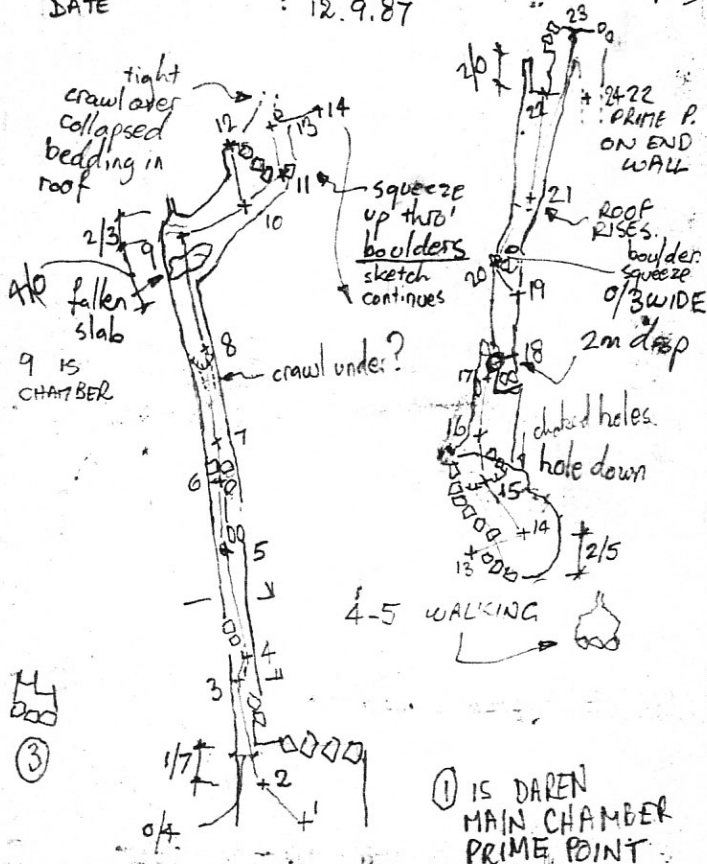 DATE : 12.9.87
tight
crawl over
collapsed
bedding in
roof
12
13
14
11
10
squeeze
up thro'
boulders
sketch
continues
2/3
9
4/0
fallen
slab
9 IS
CHAMBER
8
crawl under?
7
6
5
4
3
③
1/7
2
0/4
1
23
2/0
22
24-22
PRIME P.
ON END
WALL
21
ROOF
RISES.
20
boulder
squeeze
19
0/3 WIDE
18
2m drop
17
16
choked holes.
hole down
15
14
13
2/5
4-5 WALKING
① IS DAREN
MAIN CHAMBER
PRIME POINT